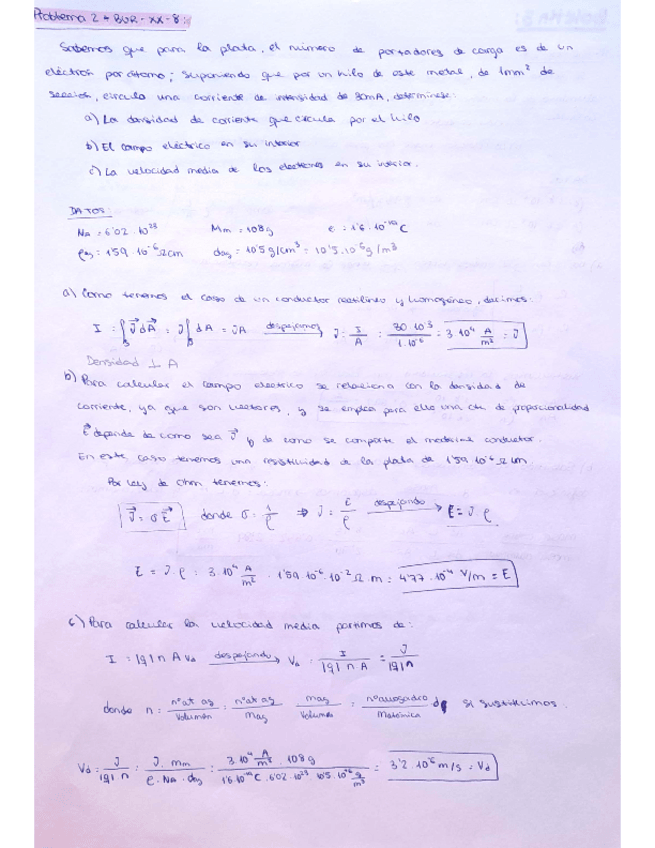 Problema 2 + BUR-XX-8:
Sabemos que para la plata, el número de portadores de carga es de un
eléctron por átomo; suponiendo que por un hilo de este metal, de 1mm² de
sección, circula una corriente de intensidad de 30mA, determínese:
a) La densidad de corriente que circula por el hilo
b) El campo eléctrico en su interior
c) La velocidad media de los electrones en su interior.
DATOS:
Na = 6'02·10²³ Mm = 108g e = 1'6·10⁻¹⁹ C
ρag = 1'59·10⁻⁶ Ωcm dag = 10'5 g/cm³ = 10'5·10⁻⁶ g/m³
a) Como tenemos el caso de un conductor rectilíneo y homogéneo, decimos:
I = ∫s J⃗ dA⃗ = J ∫s dA = JA despejamos → J = I/A = 30·10⁻³/1·10⁻⁶ = 3·10⁴ A/m² = J
Densidad ⊥ A
b) Para calcular el campo electrico se relaciona con la densidad de
corriente, ya que son vectores, y se emplea para ello una cte de proporcionalidad
E⃗ depende de como sea J⃗ y de como se comporte el material conductor.
En este caso tenemos una resistividad de la plata de 1'59·10⁻⁶ Ω cm.
Por Ley de Ohm tenemos:
J⃗ = σE⃗ donde σ = 1/ρ ⇒ J = E/ρ despejando → E = J·ρ
E = J·ρ = 3·10⁴ A/m² · 1'59·10⁻⁶·10⁻² Ω·m = 4'77·10⁻⁴ V/m = E
c) Para calcular la velocidad media partimos de:
I = |q| n A Vd despejando → Vd = I/|q| n·A = J/|q|n
donde n = nºat ag/Volumen = nºat ag/Mag · mag/Volumen = nº avogadro/Matómica d si sustituimos.
Vd = J/|q| n = J·Mm/e·NA·dag = 3·10⁴ A/m² · 108g/1'6·10⁻¹⁹ C·6'02·10²³ 10'5·10⁻⁶ g/m³ = 3'2·10⁻⁶ m/s = Vd